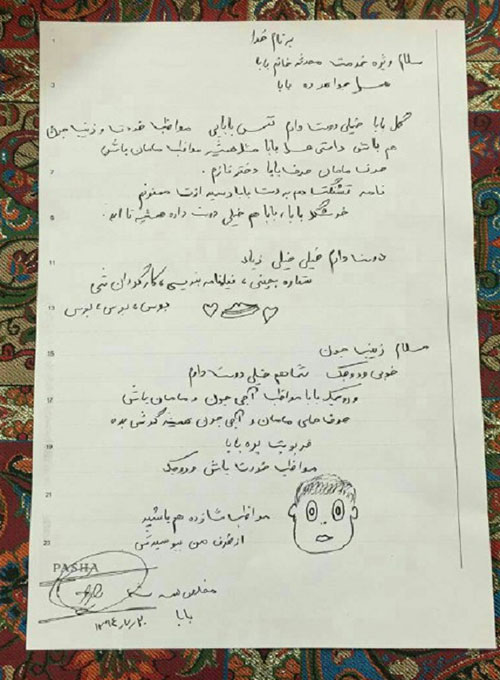 به نام خدا
سلام ویژه خدمت محدثه خانم بابا
بابا
گل بابا خیلی دوست دارم نفس بابایی مواظب خودت و زینب جون
هم باش راستی بابا مثل همیشه مواظب مامان باش
حرف مامان حرف بابا دخترنازم
نامه قشنگت هم به دست بابا رسید ازت ممنونم
خوشگل بابا، بابا هم خیلی دوست داره همیشه
دوست دارم خیلی خیلی زیاد
ستاره بچینی، فیلنامه بنویسی، کارگردان شی
بوس، بوس، بوس
سلام زینب جون
خوبی وروجک شما هم خیلی دوست دارم
وروجک بابا مواظب آجی جون و مامان باش
حرف های مامان و آجی جون همیشه گوش بده
قربونت بره بابا
مواظب خودت باش وروجک
مواظب شازده هم باشید
از طرف من ببوسیدش
PASHA
مخلص همه شما
بابا
1
3
5
7
9
11
13
15
17
19
21
23